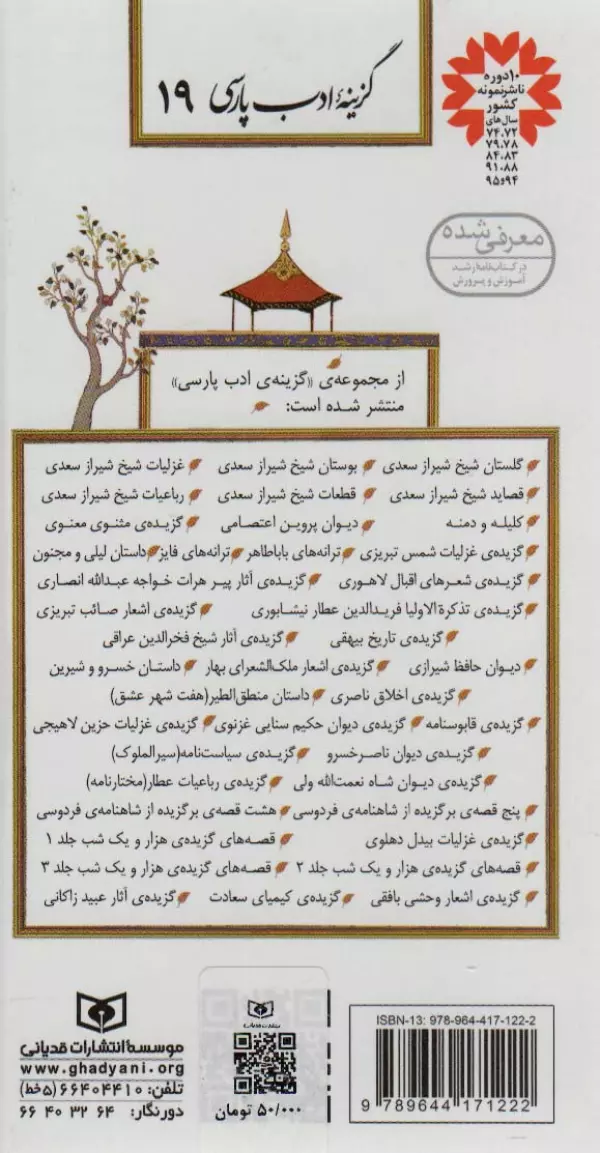 گزینهٔ ادب پارسی ۱۹
۱۰ دوره
ناشر نمونه
کشور
سال‌های
۷۴،۷۲
۷۹،۷۸
۸۴،۸۳
۹۱،۸۸
۹۴و۹۵
معرفی شده
در کتاب‌نامه رشد
آموزش و پرورش
از مجموعه‌ی «گزینه‌ی ادب پارسی»
منتشر شده است:
گلستان شیخ شیراز سعدی بوستان شیخ شیراز سعدی غزلیات شیخ شیراز سعدی
قصاید شیخ شیراز سعدی قطعات شیخ شیراز سعدی رباعیات شیخ شیراز سعدی
کلیله و دمنه دیوان پروین اعتصامی گزیده‌ی مثنوی معنوی
گزیده‌ی غزلیات شمس تبریزی ترانه‌های باباطاهر ترانه‌های فایز داستان لیلی و مجنون
گزیده‌ی شعرهای اقبال لاهوری گزیده‌ی آثار پیر هرات خواجه عبدالله انصاری
گزیده‌ی تذکرة الاولیا فریدالدین عطار نیشابوری گزیده‌ی اشعار صائب تبریزی
گزیده‌ی تاریخ بیهقی گزیده‌ی آثار شیخ فخرالدین عراقی
دیوان حافظ شیرازی گزیده‌ی اشعار ملک‌الشعرای بهار داستان خسرو و شیرین
گزیده‌ی اخلاق ناصری داستان منطق‌الطیر(هفت شهر عشق)
گزیده‌ی قابوسنامه گزیده‌ی دیوان حکیم سنایی غزنوی گزیده‌ی غزلیات حزین لاهیجی
گزیده‌ی دیوان ناصرخسرو گزیده‌ی سیاست‌نامه(سیرالملوک)
گزیده‌ی دیوان شاه نعمت‌الله ولی گزیده‌ی رباعیات عطار(مختارنامه)
پنج قصه‌ی برگزیده از شاهنامه‌ی فردوسی هشت قصه‌ی برگزیده از شاهنامه‌ی فردوسی
گزیده‌ی غزلیات بیدل دهلوی قصه‌های گزیده‌ی هزار و یک شب جلد ۱
قصه‌های گزیده‌ی هزار و یک شب جلد ۲ قصه‌های گزیده‌ی هزار و یک شب جلد ۳
گزیده‌ی اشعار وحشی بافقی گزیده‌ی کیمیای سعادت گزیده‌ی آثار عبید زاکانی
ISBN-13: 978-964-417-122-2
9 789644 171222
۵۰/۰۰۰ تومان
موسسهٔ انتشارات قدیانی
www.ghadyani.org
تلفن: ۶۶۴۰۴۴۱۰ (۵ خط)
دورنگار: ۶۶ ۴۰ ۳۲ ۶۴